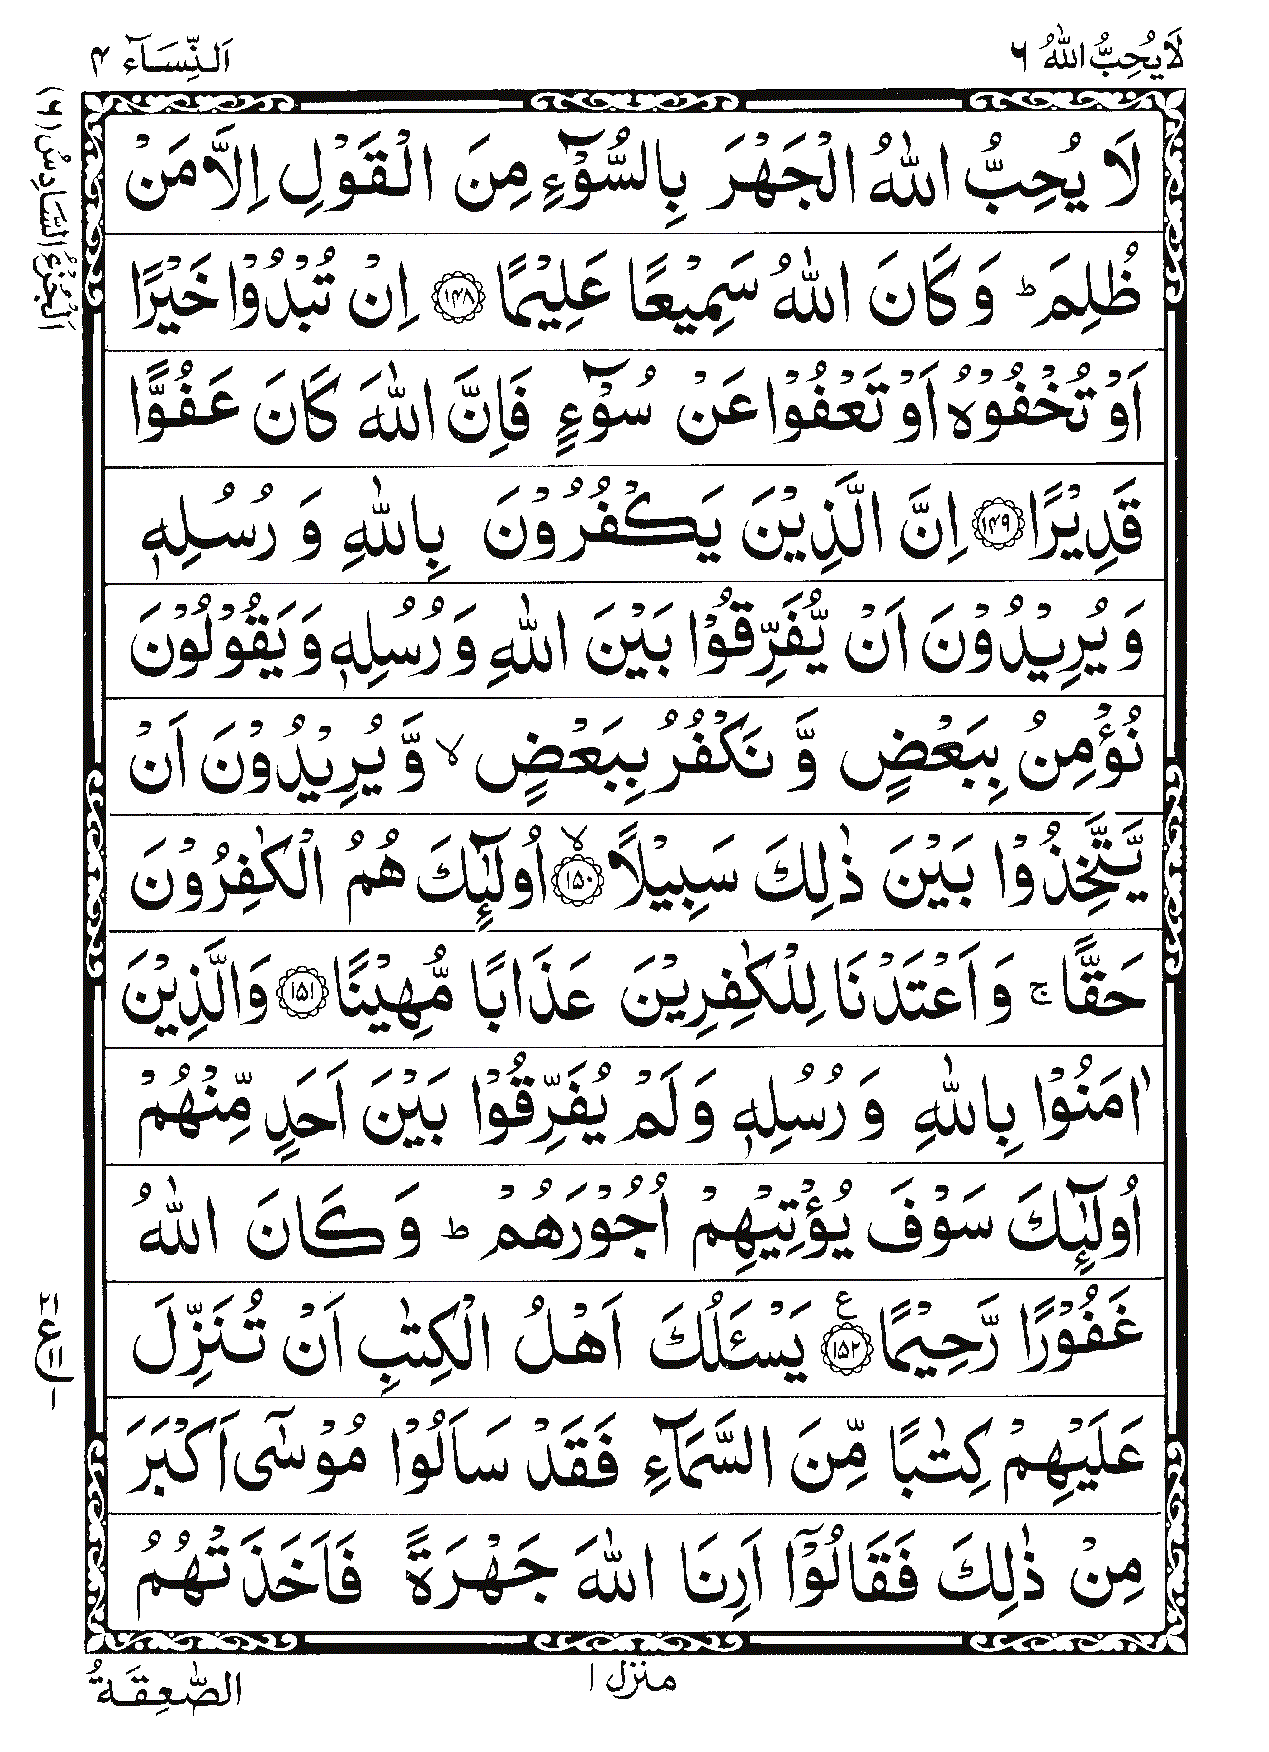 لَا يُحِبُّ اللّٰهُ ٦
اَلنِّسَآء ۴
اَلْجُزْءُ السَّادِسُ (٦)
لَا يُحِبُّ اللّٰهُ الْجَهْرَ بِالسُّوْٓءِ مِنَ الْقَوْلِ اِلَّا مَنْ
ظُلِمَ ؕ وَ كَانَ اللّٰهُ سَمِيْعًا عَلِيْمًا ۝۱۴۸ اِنْ تُبْدُوْا خَيْرًا
اَوْ تُخْفُوْهُ اَوْ تَعْفُوْا عَنْ سُوْٓءٍ فَاِنَّ اللّٰهَ كَانَ عَفُوًّا
قَدِيْرًا ۝۱۴۹ اِنَّ الَّذِيْنَ يَكْفُرُوْنَ بِاللّٰهِ وَ رُسُلِهٖ
وَ يُرِيْدُوْنَ اَنْ يُّفَرِّقُوْا بَيْنَ اللّٰهِ وَ رُسُلِهٖ وَ يَقُوْلُوْنَ
نُؤْمِنُ بِبَعْضٍ وَّ نَكْفُرُ بِبَعْضٍ ۙ وَّ يُرِيْدُوْنَ اَنْ
يَّتَّخِذُوْا بَيْنَ ذٰلِكَ سَبِيْلًا ۝۱۵۰ۙ اُولٰٓئِكَ هُمُ الْكٰفِرُوْنَ
حَقًّا ۚ وَ اَعْتَدْنَا لِلْكٰفِرِيْنَ عَذَابًا مُّهِيْنًا ۝۱۵۱ وَالَّذِيْنَ
اٰمَنُوْا بِاللّٰهِ وَ رُسُلِهٖ وَ لَمْ يُفَرِّقُوْا بَيْنَ اَحَدٍ مِّنْهُمْ
اُولٰٓئِكَ سَوْفَ يُؤْتِيْهِمْ اُجُوْرَهُمْ ؕ وَ كَانَ اللّٰهُ
غَفُوْرًا رَّحِيْمًا ۝۱۵۲ ع يَسْـَٔلُكَ اَهْلُ الْكِتٰبِ اَنْ تُنَزِّلَ
عَلَيْهِمْ كِتٰبًا مِّنَ السَّمَآءِ فَقَدْ سَاَلُوْا مُوْسٰٓى اَكْبَرَ
مِنْ ذٰلِكَ فَقَالُوْٓا اَرِنَا اللّٰهَ جَهْرَةً فَاَخَذَتْهُمُ
۲۱
ع
۱۱
۱
منزل ۱
الصّٰعِقَةُ